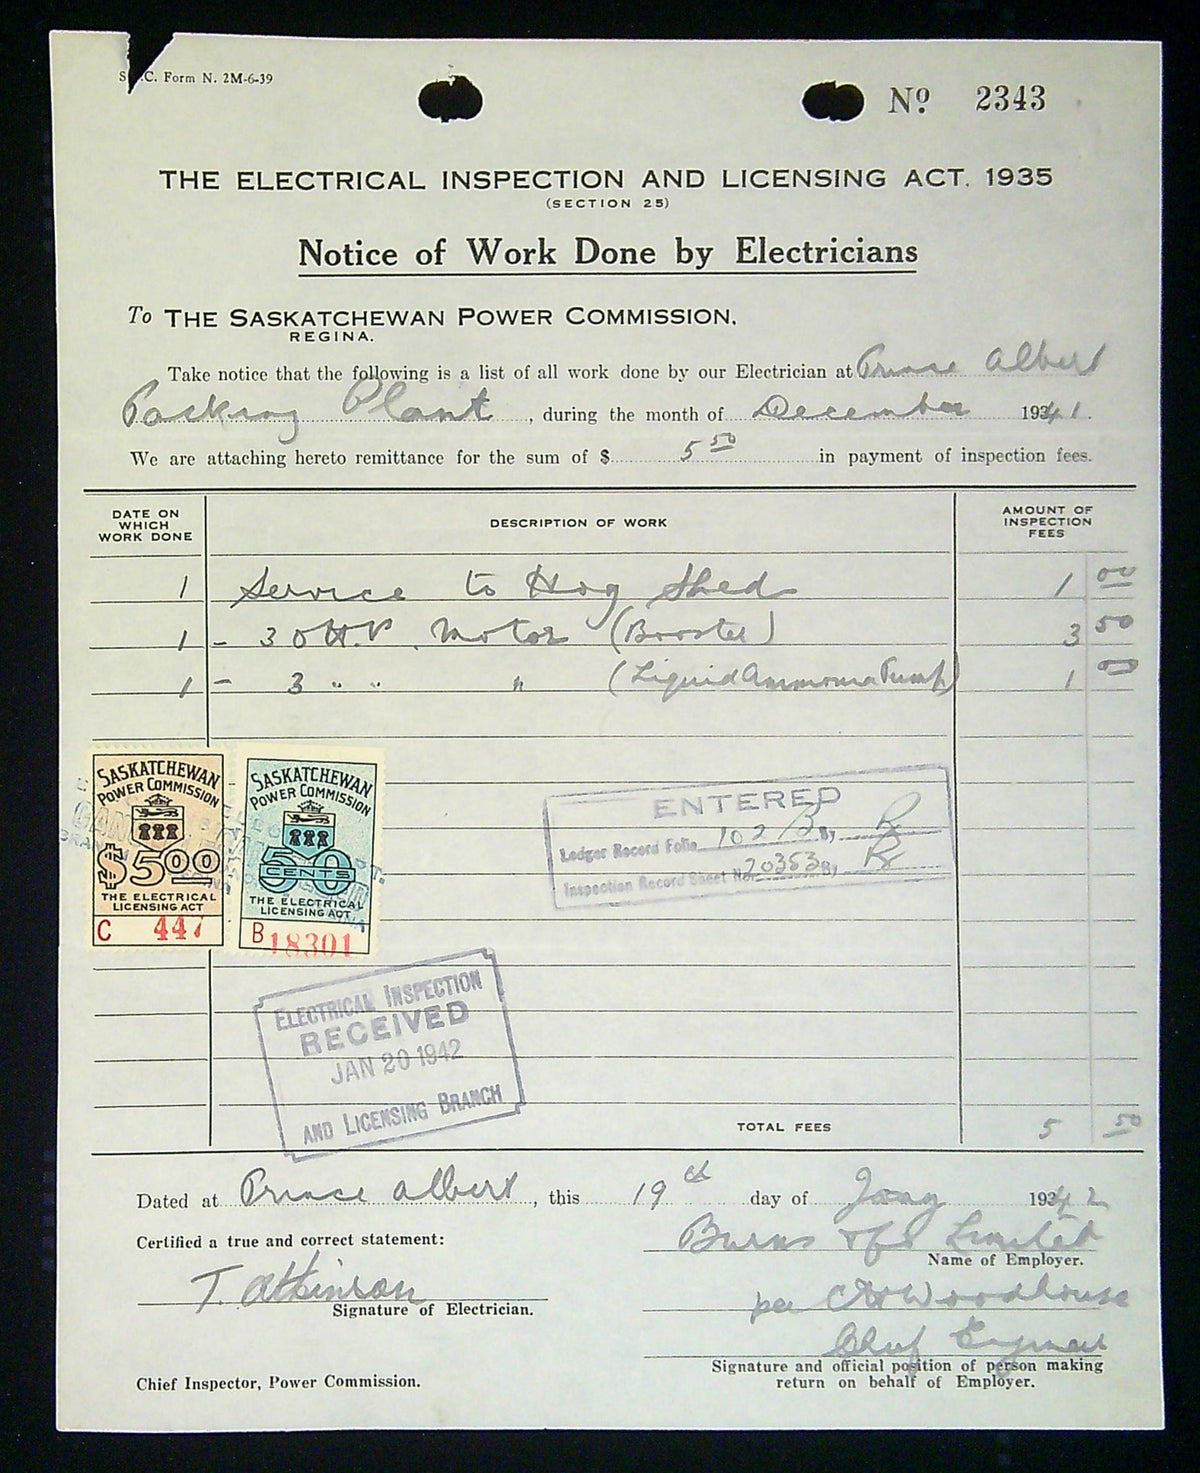 S.P.C. Form N. 2M-6-39
Nº 2343
THE ELECTRICAL INSPECTION AND LICENSING ACT. 1935
(SECTION 25)
Notice of Work Done by Electricians
To THE SASKATCHEWAN POWER COMMISSION,
REGINA.
Take notice that the following is a list of all work done by our Electrician at Prince Albert
Packing Plant, during the month of December 19341.
We are attaching hereto remittance for the sum of $ 5 50 in payment of inspection fees.
DATE ON WHICH WORK DONE
DESCRIPTION OF WORK
AMOUNT OF INSPECTION FEES
1 Service to Hog Shed 1 00
1 - 30 H.P. Motor (Booster) 3 50
1 - 3 " " " (Liquid Ammonia Pump) 1 00
SASKATCHEWAN
POWER COMMISSION
$5.00
THE ELECTRICAL
LICENSING ACT
C 447
SASKATCHEWAN
POWER COMMISSION
50
CENTS
THE ELECTRICAL
LICENSING ACT
B 18301
ENTERED
Ledger Record Folio 102 B By R
Inspection Record Sheet No. 20353 By R
ELECTRICAL INSPECTION
RECEIVED
JAN 20 1942
AND LICENSING BRANCH
TOTAL FEES 5 50
Dated at Prince Albert, this 19th day of Jany 19342
Certified a true and correct statement:
Burns & Co Limited
Name of Employer.
T. Atkinson
Signature of Electrician.
per Woodhouse
Chief Engineer
Signature and official position of person making
return on behalf of Employer.
Chief Inspector, Power Commission.